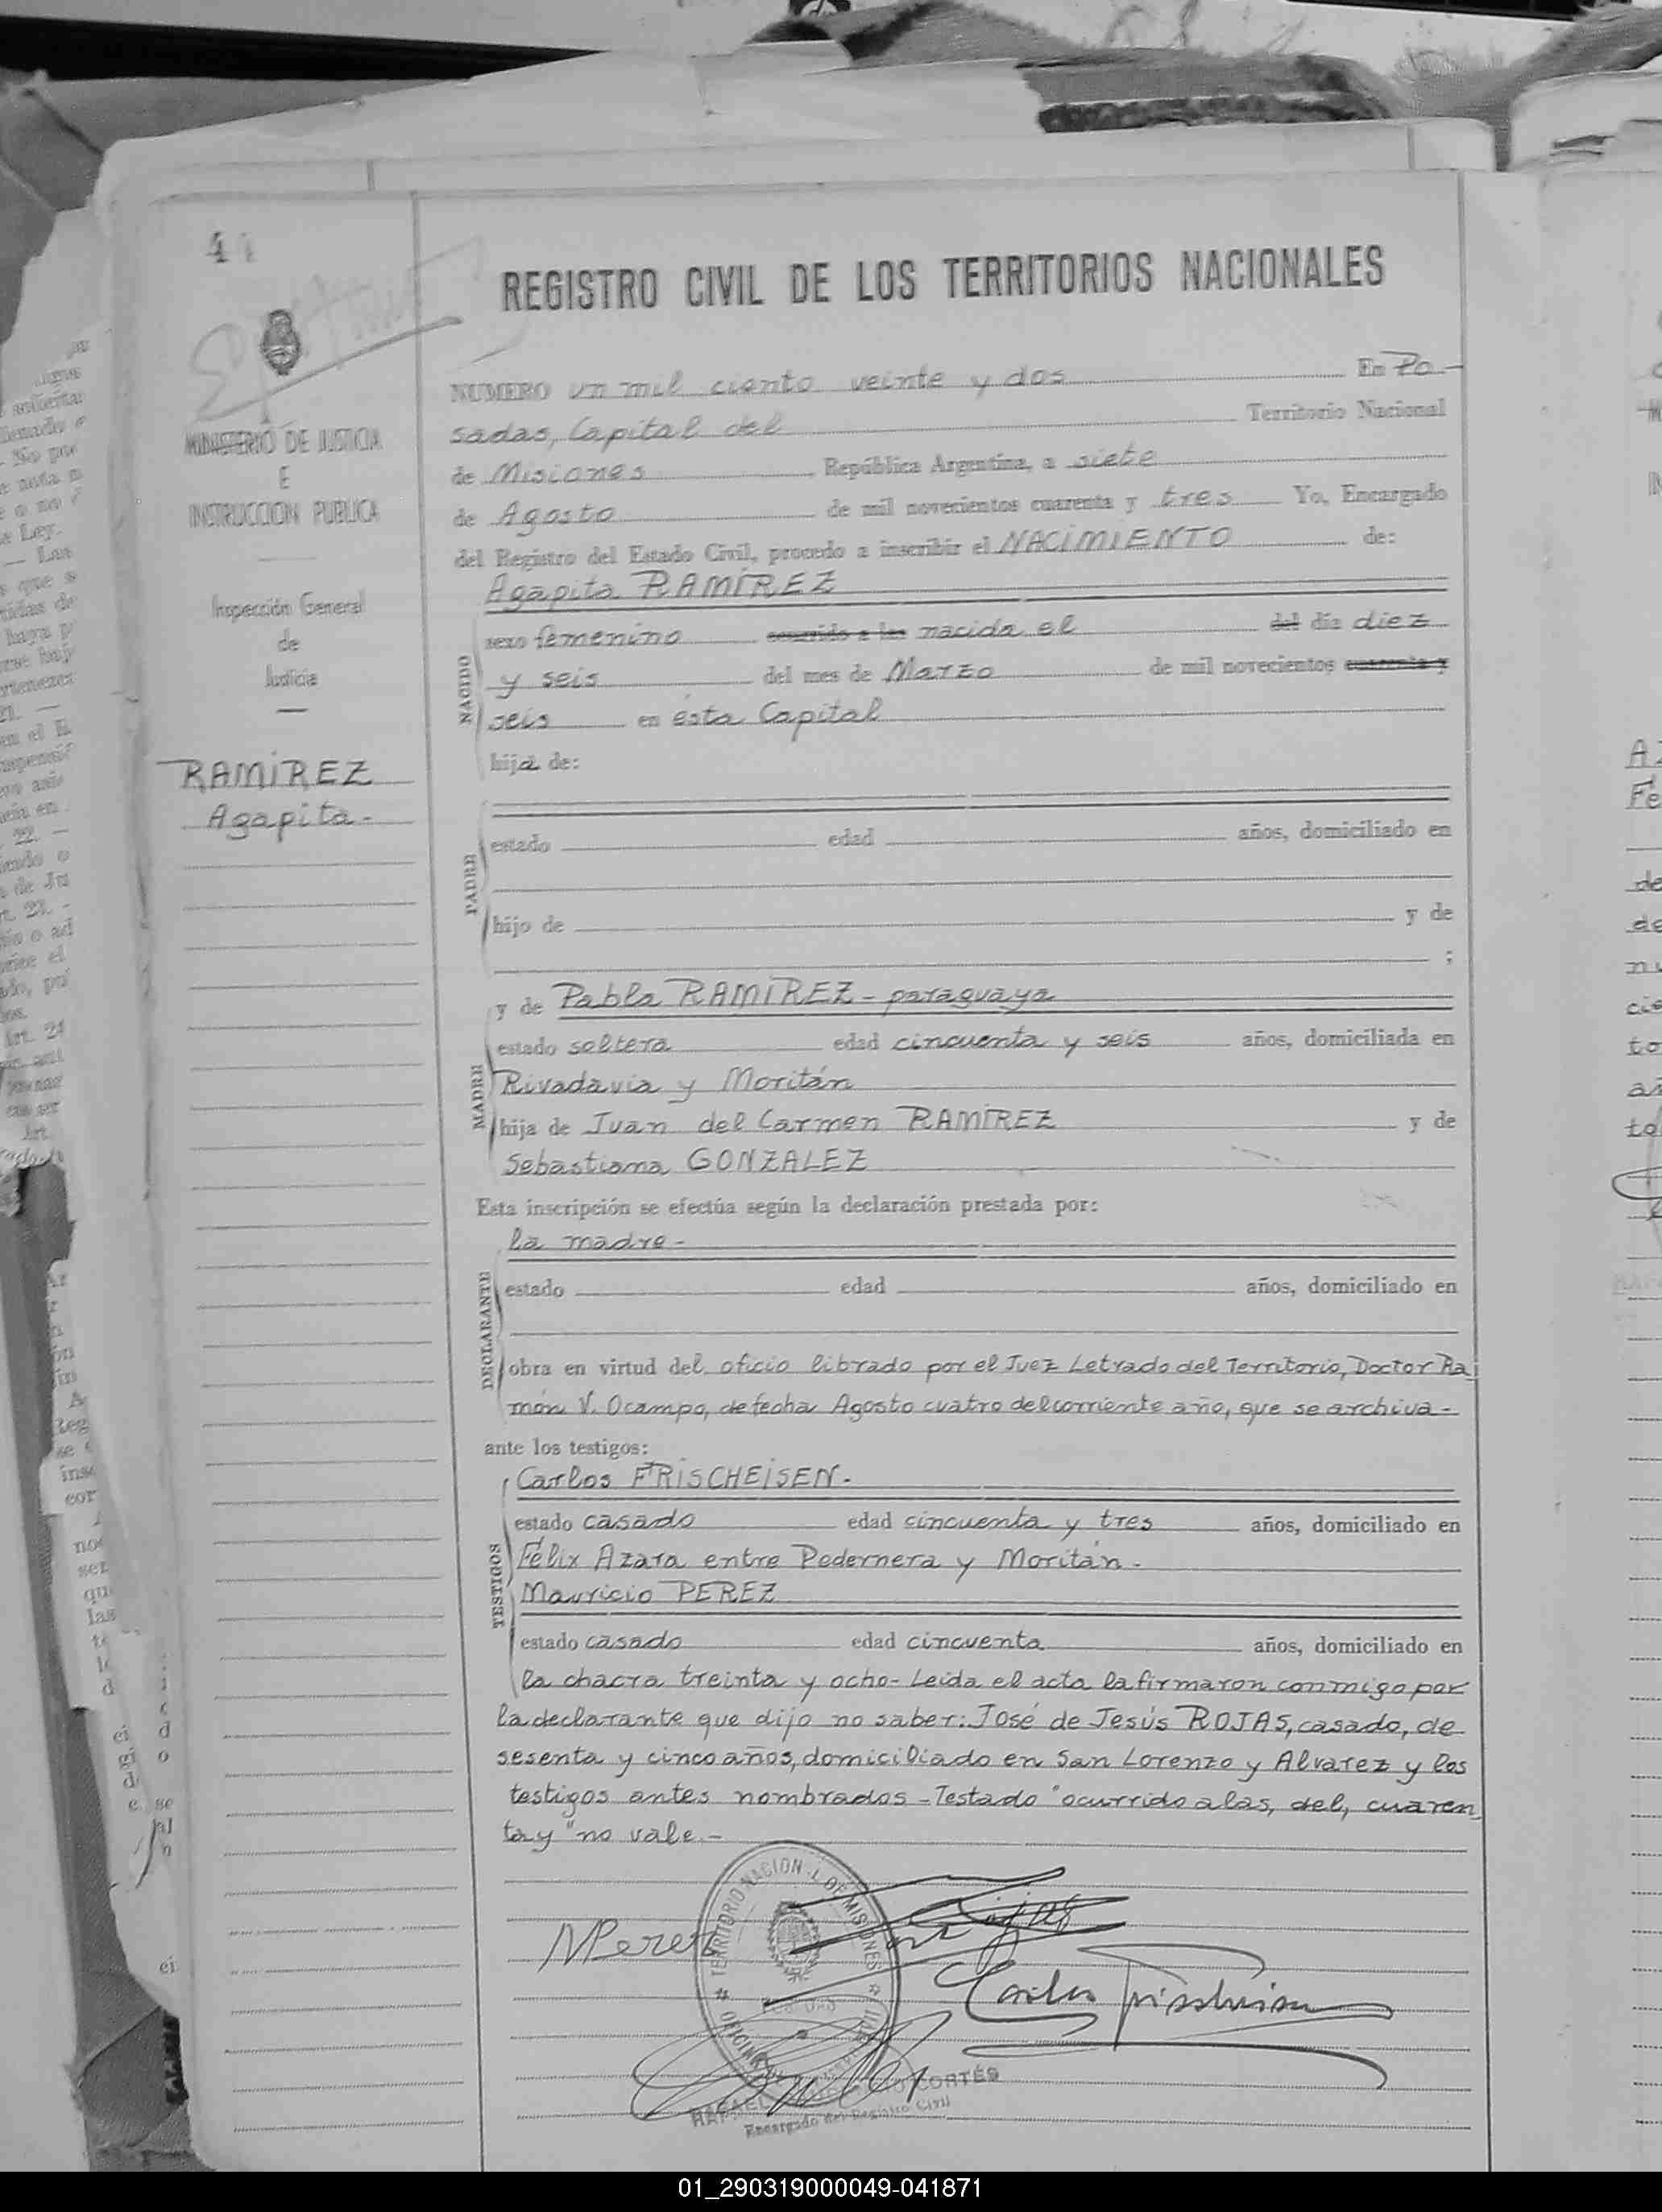 REGISTRO CIVIL DE LOS TERRITORIOS NACIONALES
MINISTERIO DE JUSTICIA
E
INSTRUCCION PUBLICA
Inspección General
de
Justicia
RAMÍREZ
Agapita.-
NUMERO un mil ciento veinte y dos En Po-
sadas, Capital del Territorio Nacional
de Misiones República Argentina, a siete
de Agosto de mil novecientos cuarenta y tres Yo, Encargado
del Registro del Estado Civil, procedo a inscribir el NACIMIENTO de:
Agapita RAMÍREZ
NACIDO
sexo femenino ocurrido a las nacida el del día diez
y seis del mes de Marzo de mil novecientos cuarenta y
seis en ésta Capital
hija de:
PADRE
estado edad años, domiciliado en
hijo de y de
;
MADRE
y de Pabla RAMÍREZ - paraguaya
estado soltera edad cincuenta y seis años, domiciliada en
Rivadavia y Moritán
hija de Juan del Carmen RAMÍREZ y de
Sebastiana GONZALEZ
Esta inscripción se efectúa según la declaración prestada por:
la madre-
DECLARANTE
estado edad años, domiciliado en
obra en virtud del oficio librado por el Juez Letrado del Territorio, Doctor Ra
món V. Ocampo, de fecha Agosto cuatro del corriente año, que se archiva-
ante los testigos:
TESTIGOS
Carlos FRISCHEISEN-
estado casado edad cincuenta y tres años, domiciliado en
Félix Azara entre Pedernera y Moritán-
Mauricio PEREZ
estado casado edad cincuenta años, domiciliado en
la chacra treinta y ocho- Leída el acta la firmaron conmigo por
la declarante que dijo no saber: José de Jesús ROJAS, casado, de
sesenta y cinco años, domiciliado en San Lorenzo y Alvarez y los
testigos antes nombrados - Testado "ocurrido a las, del, cuaren
ta y" no vale.-
TERRITORIO NACIONAL DE MISIONES
MPerez
Carlos Frischeisen
RAFAEL CORTÉS
Encargado del Registro Civil
01_290319000049-041871